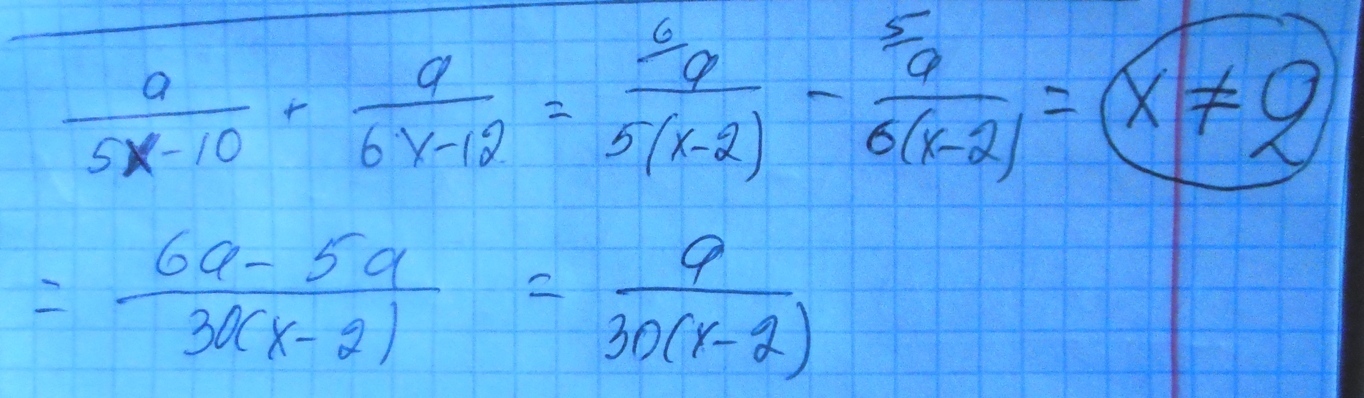 a/(5x-10) + a/(6x-12) = 6/a/(5(x-2)) - 5/a/(6(x-2)) = x ≠ 2
= (6a-5a)/(30(x-2)) = a/(30(x-2))